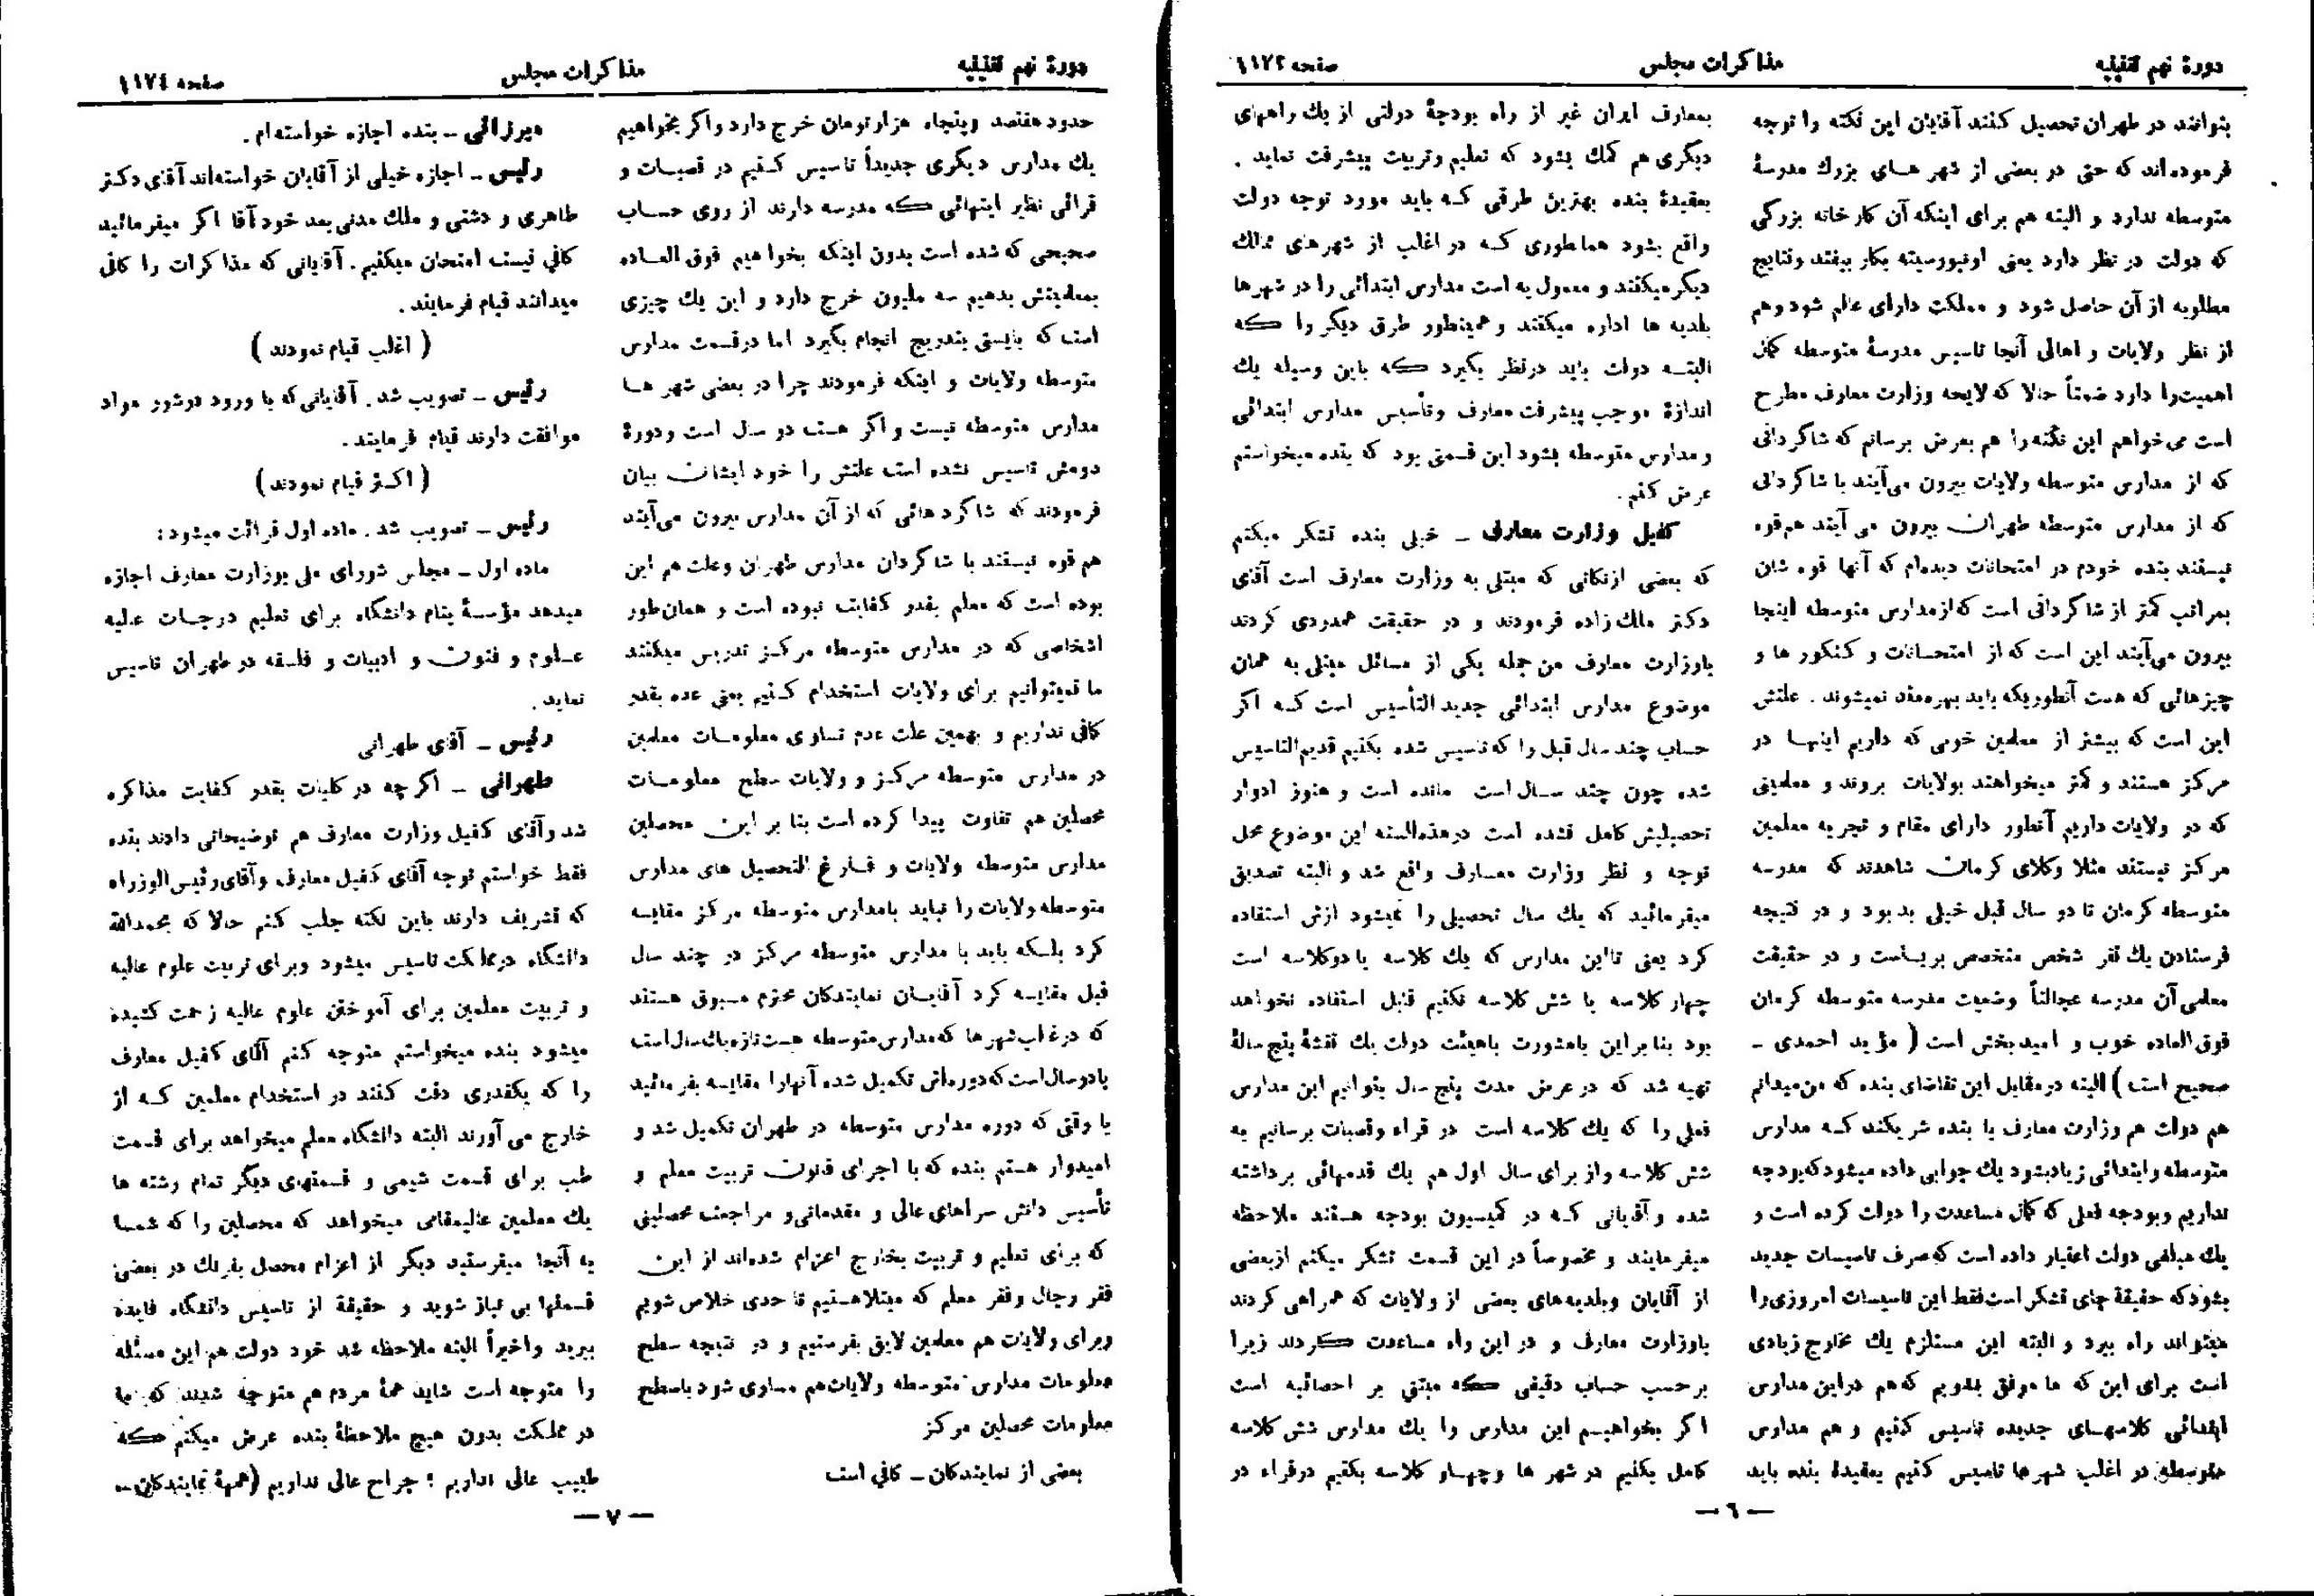 دورهٔ نهم تقنینیه
مذاکرات مجلس
صفحه ۱۱۷۳
بتوانند در طهران تحصیل کنند آقایان این نکته را توجه
فرموده‌اند که حتی در بعضی از شهر هـای بزرك مدرسهٔ
متوسطه ندارد و البته هم برای اینکه آن کارخانه بزرگی
که دولت در نظر دارد یعنی اونیورسیته بکار بیفتد و نتایج
مطلوبه از آن حاصل شود و مملکت دارای عالم شود و هم
از نظر ولایات و اهالی آنجا تاسیس مدرسهٔ متوسطه کمال
اهمیت‌را دارد ضمناً حالا که لایحه وزارت معارف مطرح
است می‌خواهم این نکته را هم بعرض برسانم که شاگردانی
که از مدارس متوسطه ولایات بیرون می‌آیند با شاگردانی
که از مدارس متوسطه طهران بیرون می آیند هم‌قوه
نیستند بنده خودم در امتحانات دیده‌ام که آنها قوه شان
بمراتب کمتر از شاگردانی است که از مدارس متوسطه اینجا
بیرون می‌آیند این است که از امتحـانات و کنکور ها و
چیزهائی که هست آنطوریکه باید بهره‌مند نمیشوند . علتش
این است که بیشتر از معلمین خوبی که داریم اینهـا در
مرکز هستند و کمتر میخواهند بولایات بروند و معلمینی
که در ولایات داریم آنطور دارای مقام و تجربه معلمین
مرکز نیستند مثلا وکلای کرمان شاهدند که مدرسه
متوسطه کرمان تا دو سال قبل خیلی بد بود و در نتیجه
فرستادن یك نفر شخص متخصص بریـاست و در حقیقت
معلمی آن مدرسه عجالتاً وضعیت مدرسه متوسطه کرمان
فوق العاده خوب و امید بخش است ( مؤید احمدی ـ
صحیح است ) البته در مقابل این تقاضای بنده که من میدانم
هم دولت هم وزارت معارف با بنده شریکند کـه مدارس
متوسطه و ابتدائی زیاد بشود یك جوابی داده میشود که بودجه
نداریم و بودجه فعلی که کمال مساعدت را دولت کرده است و
یك مبلغی دولت اعتبار داده است که صرف تاسیسات جدید
بشود که حقیقة جای تشکر است فقط این تاسیسات امروزی را
میتواند راه ببرد و البته این مستلزم یك مخارج زیادی
است برای این که ما موفق بشویم که هم در این مدارس
ابتدائی کلاسهـای جدیده تاسیس کنیم و هم مدارس
متوسطه در اغلب شهرها تاسیس کنیم بعقیدهٔ بنده باید
بمعارف ایران غیر از راه بودجهٔ دولتی از یك راههای
دیگری هم کمك بشود که تعلیم و تربیت پیشرفت نماید .
بعقیدهٔ بنده بهترین طرقی کـه باید مورد توجه دولت
واقع بشود همانطوری کـه در اغلب از شهرهای ممالك
دیگر میکنند و معمول به است مدارس ابتدائی را در شهرها
بلدیه ها اداره میکنند و همینطور طرق دیگر را که
البتـه دولت باید در نظر بگیرد که باین وسیله یك
اندازهٔ موجب پیشرفت معارف و تأسیس مدارس ابتدائی
و مدارس متوسطه بشود این قسمتی بود که بنده میخواستم
عرض کنم .
کفیل وزارت معارف ـ خیلی بنده تشکر میکنم
که بعضی از نکاتی که مبتلی به وزارت معارف است آقای
دکتر ملك زاده فرمودند و در حقیقت همدردی کردند
با وزارت معارف من جمله یکی از مسائل مبتلی به همان
موضوع مدارس ابتدائی جدید التأسیس است کـه اگر
حساب چند سال قبل را که تاسیس شده بکنیم قدیم‌التاسیس
شده چون چند سـال است مانده است و هنوز ادوار
تحصیلیش کامل نشده است در هذه‌السنه این موضوع محل
توجه و نظر وزارت معـارف واقع شد و البته تصدیق
میفرمائید که یك سال تحصیلی را نمیشود ازش استفاده
کرد یعنی تا این مدارس که یك کلاسه یا دو کلاسه است
چهار کلاسه یا شش کلاسه نکنیم قابل استفاده نخواهد
بود بنابراین با مشورت باهیئت دولت یك نقشهٔ پنج سالهٔ
تهیه شد که در عرض مدت پنج سال بتوانیم این مدارس
فعلی را که یك کلاسه است در قراء و قصبات برسانیم به
شش کلاسه و از برای سال اول هم یك قدمهائی برداشته
شده و آقایانی کـه در کمیسیون بودجه هستند ملاحظه
میفرمایند و مخصوصاً در این قسمت تشکر میکنم از بعضی
از آقایان و بلدیه‌های بعضی از ولایات که همراهی کردند
با وزارت معارف و در این راه مساعدت کردند زیرا
بر حسب حساب دقیقی که مبتنی بر احصائیه است
اگر بخواهیـم این مدارس را یك مدارس شش کلاسه
کامل بکنیم در شهر ها و چهـار کلاسه بکنیم در قراء در
— ٦ —
دورهٔ نهم تقنینیه
مذاکرات مجلس
صفحه ۱۱۷٤
حدود هفتصد و پنجاه هزار تومان خرج دارد و اگر بخواهیم
یك مدارس دیگری جدیداً تاسیس کـنیم در قصبـات و
قرائی نظیر اینهائی که مدرسه دارند از روی حسـاب
صحیحی که شده است بدون اینکه بخواهیم فوق العـاده
بمعلمینش بدهیم سه ملیون خرج دارد و این یك چیزی
است که بایستی بتدریج انجام بگیرد اما در قسمت مدارس
متوسطه ولایات و اینکه فرمودند چرا در بعضی شهر هـا
مدارس متوسطه نیست و اگر هست دو سال است و دورهٔ
دومش تاسیس نشده است علتش را خود ایشان بیان
فرمودند که شاگردهائی که از آن مدارس بیرون می‌آیند
هم قوه نیستند با شاگردان مدارس طهران و علت هم این
بوده است که معلم بقدر کفایت نبوده است و همان‌طور
اشخاصی که در مدارس متوسطه مرکـز تدریس میکنند
ما نمیتوانیم برای ولایات استخدام کـنیم یعنی عده بقدر
کافی نداریم و بهمین علت عدم تساوی معلومـات معلمین
در مدارس متوسطه مرکـز و ولایات سطح معلومـات
محصلین هم تفاوت پیدا کرده است بنا بر این محصلین
مدارس متوسطه ولایات و فـارغ التحصیل های مدارس
متوسطه ولایات را نباید با مدارس متوسطه مرکز مقایسه
کرد بلـکه باید با مدارس متوسطه مرکز در چند سال
قبل مقایسه کرد آقایـان نمایندگان محترم مسبوق هستند
که در غالب شهر ها که مدارس متوسطه هست تازه یك سال است
یا دو سال است که دوره‌اش تکمیل شده آنها را مقایسه بفرمائید
با وقتی که دوره مدارس متوسطه در طهران تکمیل شد و
امیدوار هستم بنده که با اجرای قانون تربیت معلم و
تأسیس دانش سراهای عالی و مقدماتی و مراجعت محصلینی
که برای تعلیم و تربیت بخارج اعزام شده‌اند از این
فقر رجال و فقر معلم که مبتلا هستیم تا حدی خلاص شویم
و برای ولایات هم معلمین لایق بفرستیم و در نتیجه سطح
معلومات مدارس متوسطه ولایات هم مساوی شود با سطح
معلومات محصلین مرکز
بعضی از نمایندگان ـ کافی است
میرزائی ـ بنده اجازه خواسته‌ام .
رئیس ـ اجازه خیلی از آقایان خواسته‌اند آقای دکتر
طاهری و دشتی و ملك مدنی بعد خود آقا اگر میفرمائید
کافی نیست امتحان میکنیم . آقایانی که مذاکرات را کافی
میدانند قیام فرمایند .
( اغلب قیام نمودند )
رئیس ـ تصویب شد . آقایانی که با ورود در شور مواد
موافقت دارند قیام فرمایند .
( اکثر قیام نمودند )
رئیس ـ تصویب شد . ماده اول قرائت میشود :
ماده اول ـ مجلس شورای ملی بوزارت معارف اجازه
میدهد مؤسسهٔ بنام دانشگاه برای تعلیم درجـات عـالیه
عـلوم و فنون و ادبیات و فلسفه در طهران تاسیس
نماید .
رئیس ـ آقای طهرانی
طهرانی ـ اگر چه در کلیات بقدر کفایت مذاکره
شد و آقای کفیل وزارت معارف هم توضیحاتی دادند بنده
فقط خواستم توجه آقای کفیل معارف و آقای رئیس الوزراء
که تشریف دارند باین نکته جلب کنم حالا که بحمدالله
دانشگاه در مملکت تاسیس میشود و برای تربیت علوم عالیه
و تربیت معلمین برای آموختن علوم عالیه زحمت کشیده
میشود بنده میخواستم متوجه کنم آقای کفیل معارف
را که یکقدری دقت کنند در استخدام معلمین کـه از
خارج می آورند البته دانشگاه معلم میخواهد برای قسمت
طب برای قسمت شیمی و قسمتهای دیگر تمام رشته ها
یك معلمین عالیمقامی میخواهد که محصلین را که شمـا
به آنجا میفرستید دیگر از اعزام محصل بفرنك در بعضی
قسمتها بی نیاز شوید و حقیقة از تاسیس دانشگاه فایده
ببرید و اخیراً البته ملاحظه شد خود دولت هم این مسئله
را متوجه است شاید همهٔ مردم هم متوجه شدند که ما
در مملکت بدون هیچ ملاحظهٔ بنده عرض میکنم که
طبیب عالی نداریم ؛ جراح عالی نداریم (همهمهٔ نمایندگان ـ
— ۷ —